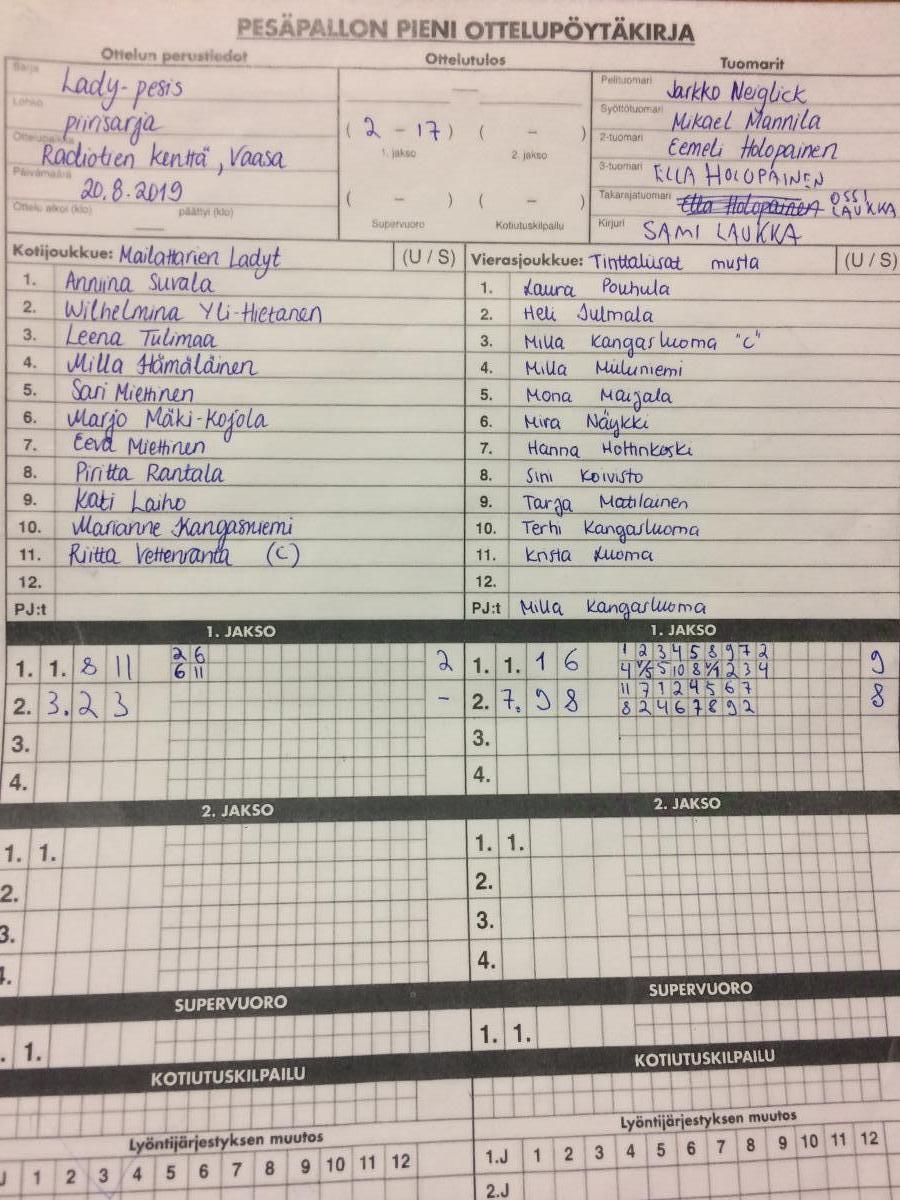 PESÄPALLON PIENI OTTELUPÖYTÄKIRJA
Ottelun perustiedot
Sarja
Lady-pesis
Lohko
piirisarja
Ottelupaikka
Radiotien kenttä, Vaasa
Päivämäärä
20.8.2019
Ottelu alkoi (klo) — päättyi (klo)
Ottelutulos
—
( 2 - 17 ) ( - )
1. jakso 2. jakso
( - ) ( - )
Supervuoro Kotiutuskilpailu
Tuomarit
Pelituomari Jarkko Neiglick
Syöttötuomari Mikael Mannila
2-tuomari Eemeli Holopainen
3-tuomari ELLA HOLOPAINEN
Takarajatuomari Ella Holopainen OSSI LAUKKA
Kirjuri SAMI LAUKKA
Kotijoukkue: Mailattarien Ladyt (U / S)
1. Anniina Suvala
2. Wilhelmina Yli-Hietanen
3. Leena Tulimaa
4. Milla Hämäläinen
5. Sari Miettinen
6. Marjo Mäki-Kojola
7. Eeva Miettinen
8. Piritta Rantala
9. Kati Laiho
10. Marianne Kangasniemi
11. Riitta Vettenranta (C)
12.
PJ:t
Vierasjoukkue: Tinttaliisat musta (U / S)
1. Laura Pouhula
2. Heli Julmala
3. Milla Kangasluoma "C"
4. Milla
5. Mona Maijala
6. Mira Näykki
7. Hanna Hottinkoski
8. Sini Koivisto
9. Tarja Matilainen
10. Terhi Kangasluoma
11. Krista Luoma
12.
PJ:t Milla Kangasluoma
1. JAKSO
1. 1. 8 11 2 6 2
6 11
2. 3. 2 3 -
3.
4.
1. JAKSO
1. 1. 1 6 1 2 3 4 5 8 9 7 2 9
4 V/5 5 10 8 V/1 2 3 4
2. 7. 9 8 11 7 1 2 4 5 6 7 8
8 2 4 6 7 8 9 2
3.
4.
2. JAKSO
1. 1.
2.
3.
4.
2. JAKSO
1. 1.
2.
3.
4.
SUPERVUORO
. 1.
SUPERVUORO
1. 1.
KOTIUTUSKILPAILU
KOTIUTUSKILPAILU
Lyöntijärjestyksen muutos
J 1 2 3 4 5 6 7 8 9 10 11 12
Lyöntijärjestyksen muutos
1.J 1 2 3 4 5 6 7 8 9 10 11 12
2.J